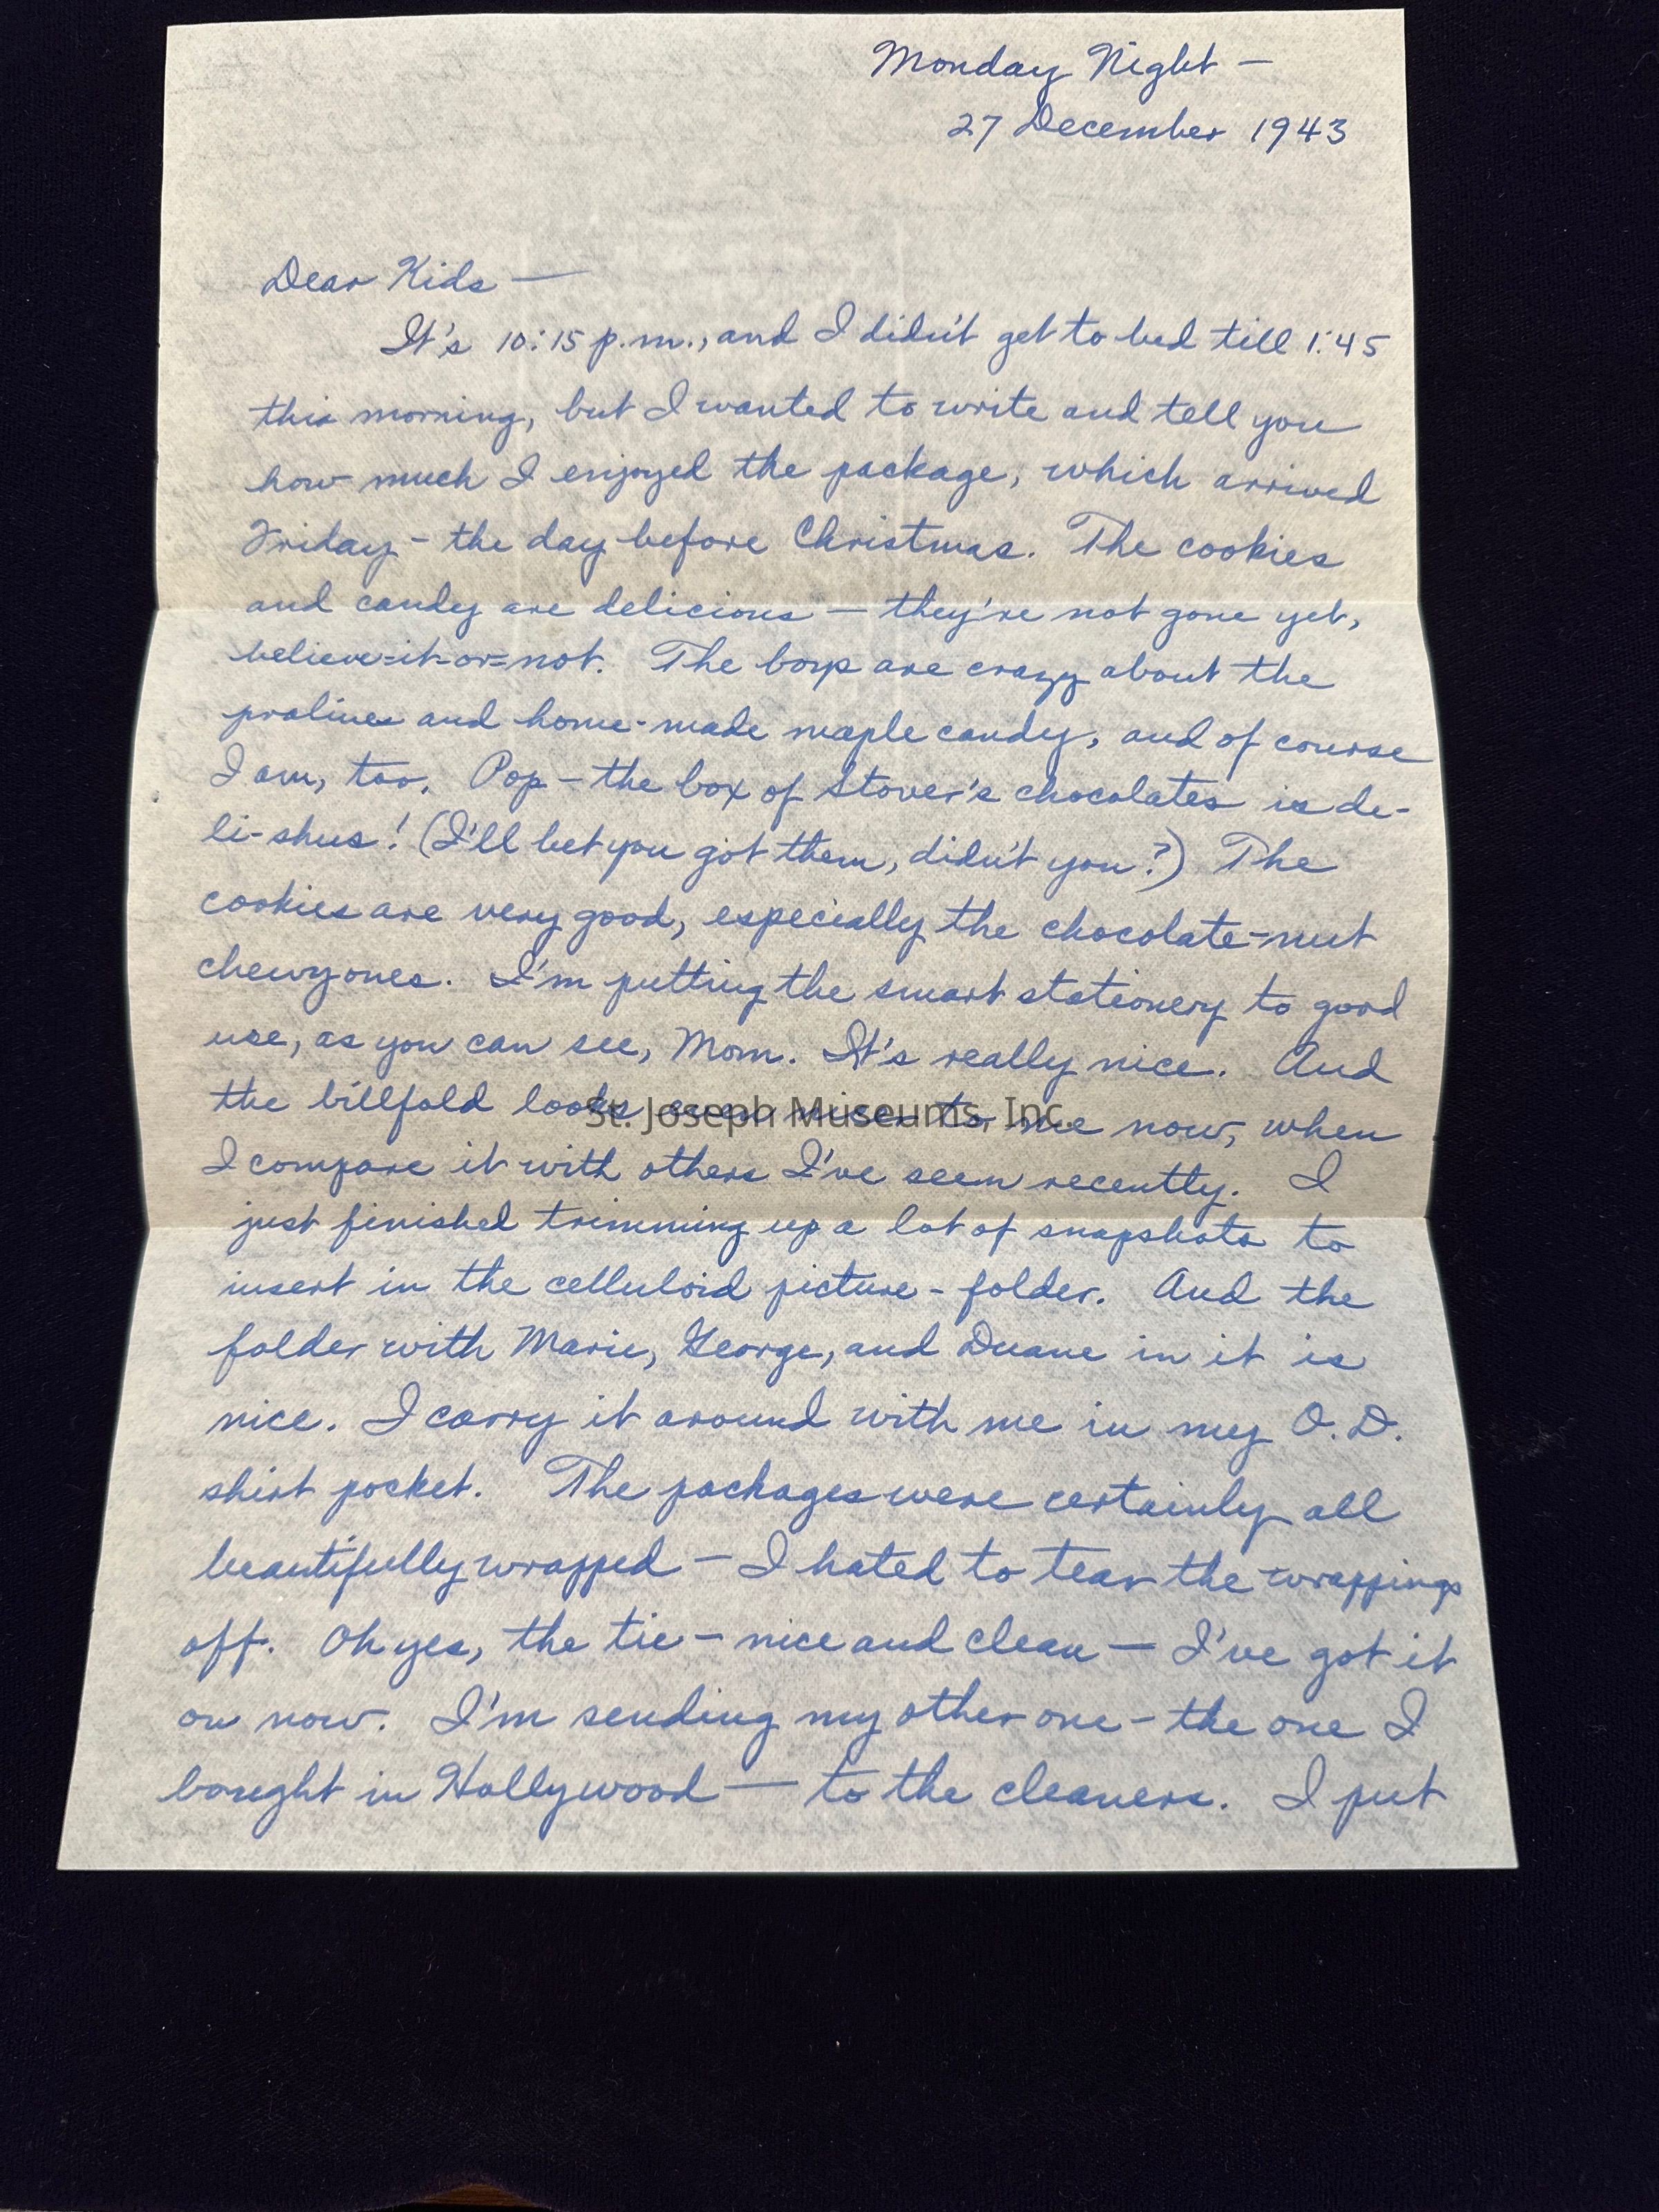 Monday Night —
27 December 1943
Dear Kids —
It's 10:15 p.m., and I didn't get to bed till 1:45
this morning, but I wanted to write and tell you
how much I enjoyed the package, which arrived
Friday - the day before Christmas. The cookies
and candy are delicious — they're not gone yet,
believe-it-or-not. The boys are crazy about the
pralines and home-made maple candy, and of course
I am, too. Pop - the box of Stover's chocolates is de-
li-shus! (I'll bet you got them, didn't you?) The
cookies are very good, especially the chocolate-nut
chewy ones. I'm putting the smart stationery to good
use, as you can see, Mom. It's really nice. And
the billfold looks even nicer to me now, when
St. Joseph Museums, Inc.
I compare it with others I've seen recently. I
just finished trimming up a lot of snapshots to
insert in the celluloid picture-folder. And the
folder with Marie, George, and Duane in it is
nice. I carry it around with me in my O.D.
shirt pocket. The packages were certainly all
beautifully wrapped — I hated to tear the wrappings
off. Oh yes, the tie - nice and clean — I've got it
on now. I'm sending my other one - the one I
bought in Hollywood — to the cleaners. I put